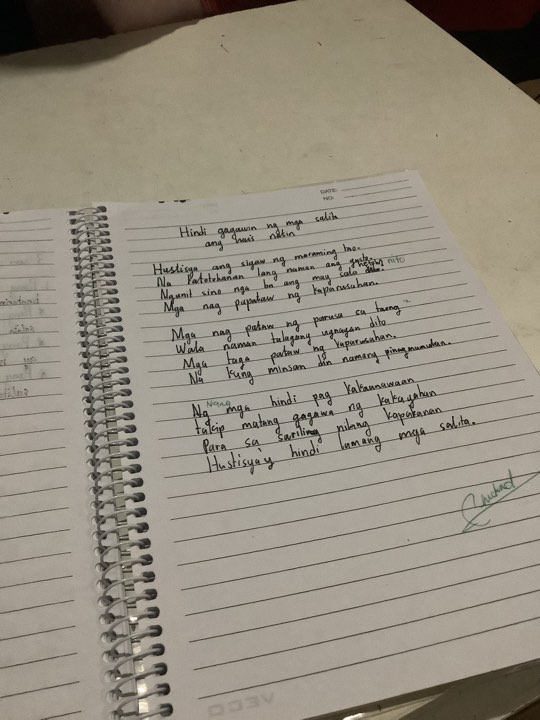 DATE:
NO:
Hindi gagawin ng mga salita
ang nais natin
Hustisya ang sigaw ng maraming tao.
Na lang naman ang gusto
Ngunit sino nga ba ang may sala nito
Mga nag papataw ng kaparusahan.
Mga nag pataw ng parusa sa taong
Wala naman talagang ugnayan dito
Mga taga pataw ng kaparusahan.
Na kung minsan din namang pinagmumulan.
Ng mga hindi pag kakaunawaan
takip matang gagawa ng kakayahan
Para sa sariling nilang kapakanan
Hustisya'y hindi lamang mga salita.
VECO